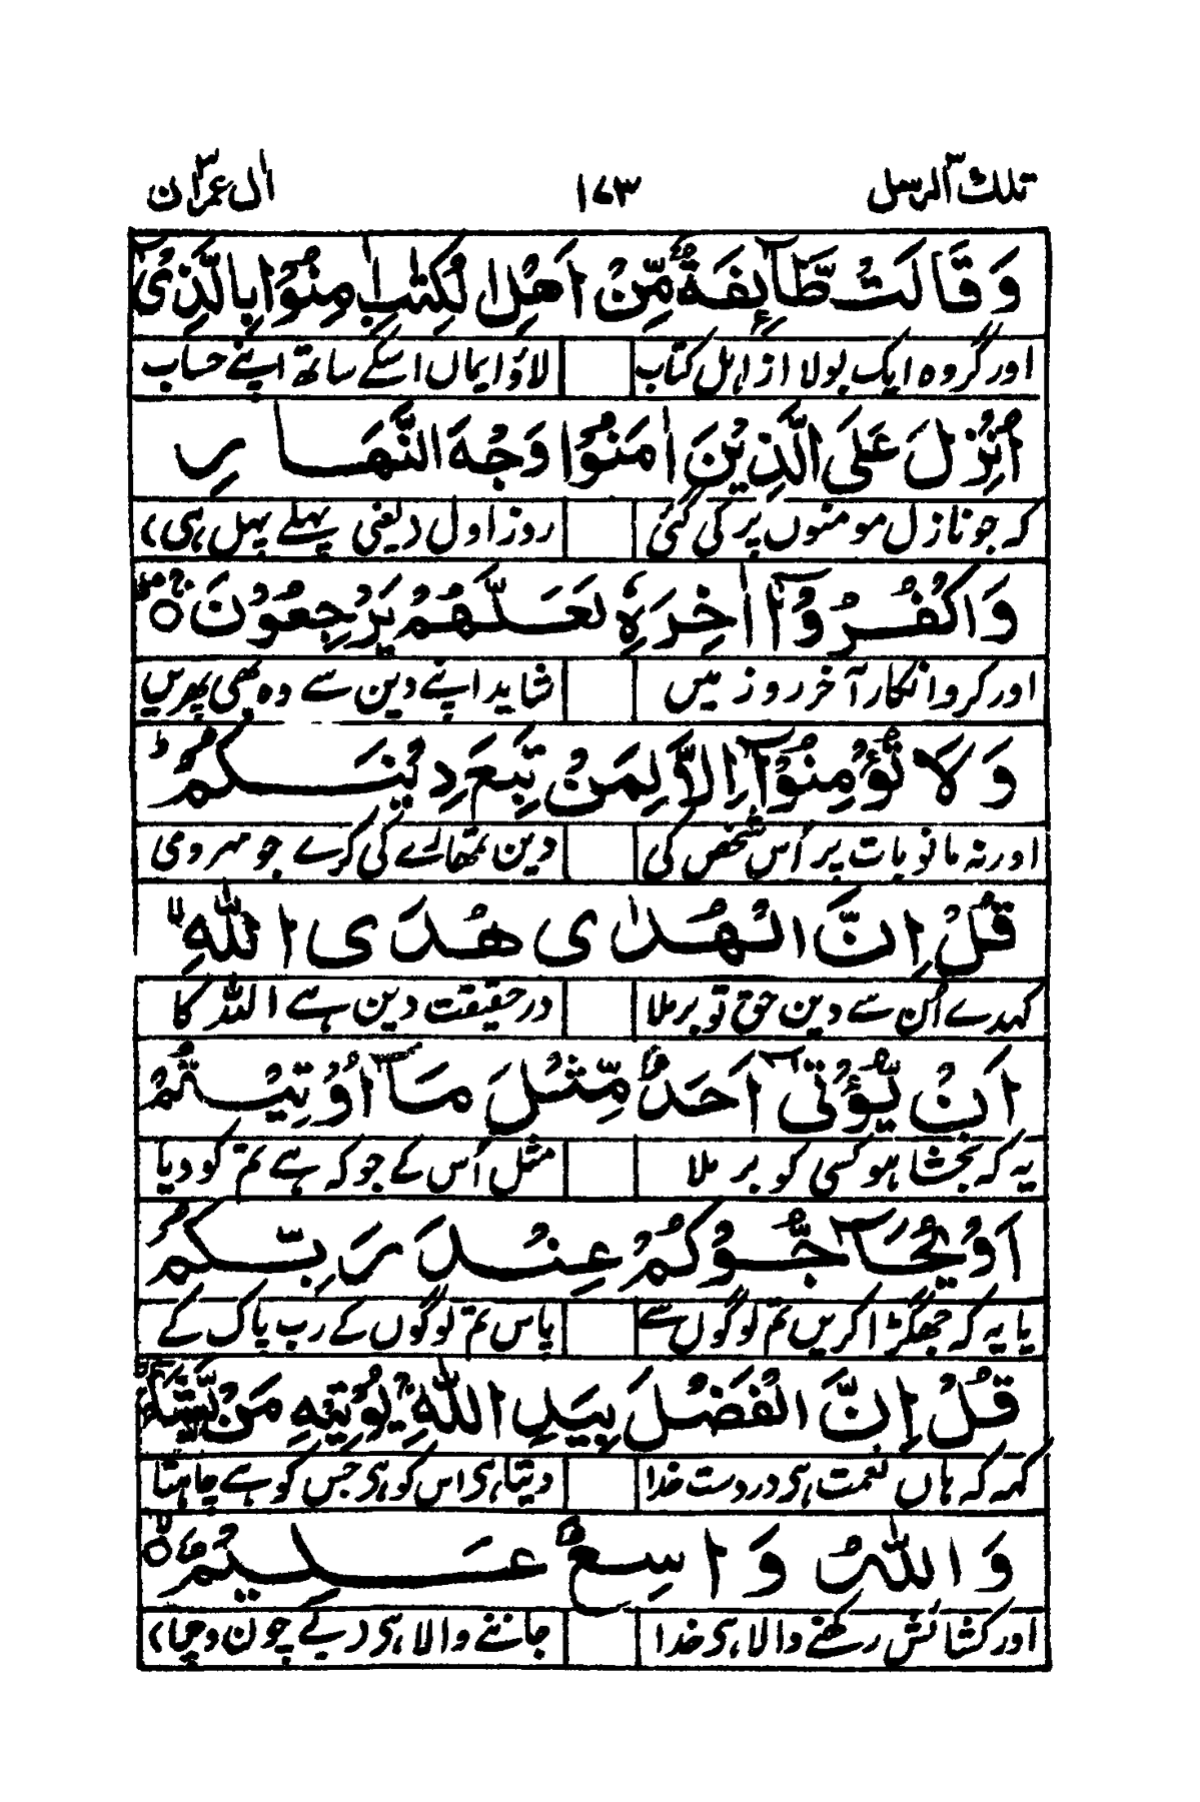 تلك الرسل ۳ ۱۷۳ اٰل عمرٰن ۳
وَقَالَتْ طَّآئِفَةٌ مِّنْ اَهْلِ الْكِتٰبِ اٰمِنُوْا بِالَّذِيْٓ
اور گروہ ایک بولا از اہل کتاب لاؤ ایماں اسکے ساتھ اپنے حساب
اُنْزِلَ عَلَى الَّذِيْنَ اٰمَنُوْا وَجْهَ النَّهَارِ
کہ جو نازل مومنوں پر کی گئی روز اول (یعنی پہلے پہل ہی)
وَاكْفُرُوْٓا اٰخِرَهٗ لَعَلَّهُمْ يَرْجِعُوْنَ ۝
اور کرو انکار آخر روز میں شاید اپنے دین سے وہ بھی پھریں
وَلَا تُؤْمِنُوْٓا اِلَّا لِمَنْ تَبِعَ دِيْنَكُمْ ؕ
اور نہ مانو بات پر اُس شخص کی دین تمھارے کی کرے جو پیروی
قُلْ اِنَّ الْهُدٰى هُدَى اللّٰهِ ۙ
کہدے اُن سے دین حق تو برملا درحقیقت دین ہے اللہ کا
اَنْ يُّؤْتٰٓى اَحَدٌ مِّثْلَ مَآ اُوْتِيْتُمْ
یہ کہ بخشا ہو کسی کو بر ملا مثل اُس کے جو کہ ہے تم کو دیا
اَوْ يُحَآجُّوْكُمْ عِنْدَ رَبِّكُمْ ؕ
یا یہ کہ جھگڑا کریں تم لوگوں سے پاس تم لوگوں کے رب پاک کے
قُلْ اِنَّ الْفَضْلَ بِيَدِ اللّٰهِ ۚ يُؤْتِيْهِ مَنْ يَّشَآءُ ؕ
کہہ کہ ہاں نعمت ہی در دست خدا دیتا ہی اس کو ہی جس کو ہے چاہتا
وَاللّٰهُ وَاسِعٌ عَلِيْمٌ ۝ۙ
اور کشائش رکھنے والا ہی خدا جاننے والا ہی (بے چون و چرا)